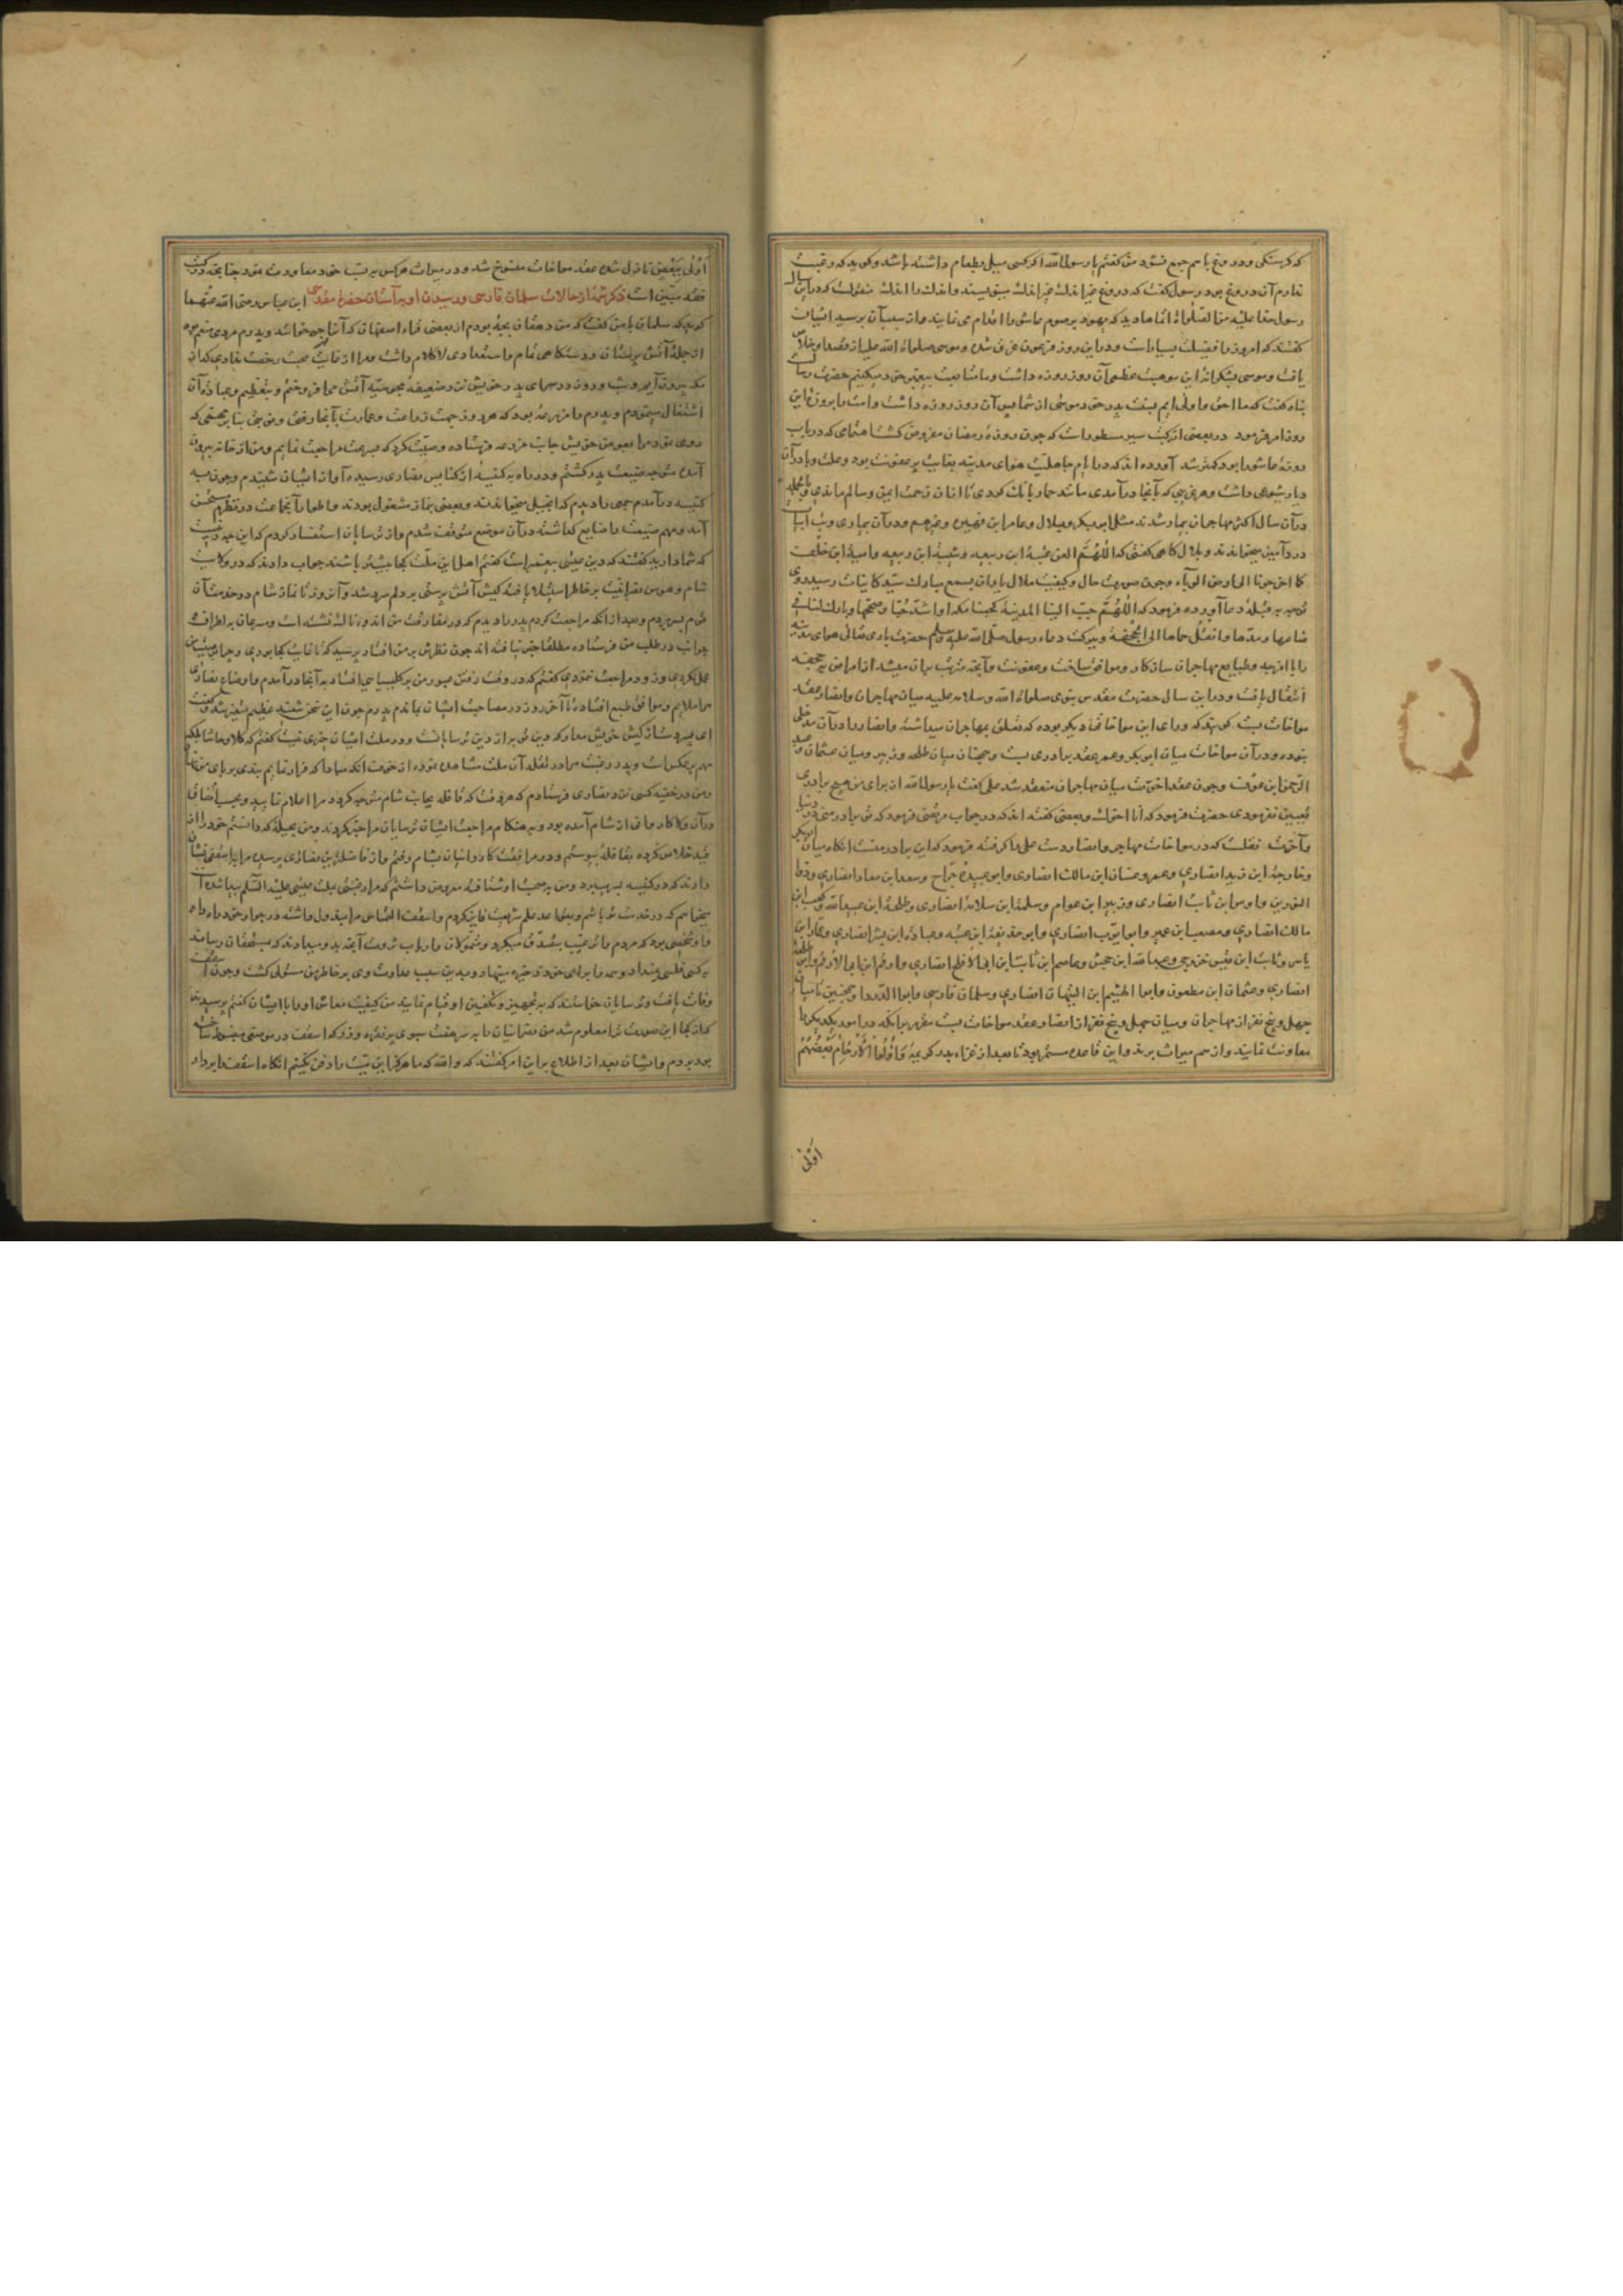 که کرسنکی و دروغ با هم جمع نشود من کفتم یا رسول الله اکر کسی میل بطعام داشته باشد و کوید که رغبت
ندارم آن دروغ بود رسول کفت که دروغ
رسول خدا علیه من الصلواة انما ها دید که یهود برصوم عاشورا اقدام می نمایند و از سبب آن پرسید ایشان
کفتند که امروز را فضیلت بسیار است و در این روز فرعون غرق شده و موسی صلواة الله علیه از قصد او خلاص
یافت و موسی بشکرانه این موهبت عظمی آن روز روزه داشت و ما متابعت پیغمبر خود میکنیم حضرت رسالت
پناه کفت که ما احق و اولی ایم بسنت برادر خود موسی از شما پس آن روز روزه داشت و امت را بروزه این
روز امر فرمود در بعضی از کتب سیر مسطور است که چون روزه رمضان مفروض کشت اهتمامی که در باب
روزه عاشورا بود کمتر شد آورده اند که در ایام جاهلیت هوای مدینه بغایت پر عفونت بود و علت وبا در آن
دیار شیوعی داشت و هر غریبی که بآنجا در آمدی مانند حمار بانک کردی تا از آن زحمت ایمن و سالم ماندی
در آن سال اکثر مهاجران بیمار شدند مثل ابو بکر و بلال و عامر ابن فهیره و غیرهم و در آن بیماری
درد آمیز میخواندند و بلال کاهی کفتی که اللهم العن عتبه ابن ربیعه و شیبة ابن ربیعه و امیة ابن خلف
کما اخرجونا الی ارض الوباء و چون صورت حال و کیفیت ملال یاران بسمع مبارک سید کاینات رسید روی
توجه به قبله دعا آورده فرمود که اللهم حبب الینا المدینة کحبنا مکه او اشد حبا و صححها و بارک لنا فی
صاعها و مدها و انقل حماها الی الجحفة و ببرکت دعاء رسول صلی الله علیه و سلم حضرت باری تعالی هوای مدینه
را با امزجه و طبایع مهاجران سازکار و موافق ساخت و عفونت
انتقال یافت و در این سال حضرت مقدس نبوی صلواة الله و سلامه علیه میان مهاجران و انصار عقد
مواخات بست کویند که ورای این مواخاتی دیکر بوده که تعلق بمهاجران میداشته و انصار را در آن مدخلی
نبوده و در آن مواخات میان ابو بکر و عمر عقد برادری بست و همچنان میان طلحه و زبیر و میان عثمان و عبد
الرحمن ابن عوف و چون عقد اخوت میان مهاجران منعقد شد علی کفت یا رسول الله از برای من هیچ برادری
تعیین نفرمودی حضرت فرمود که انا اخوک و بعضی کفته اند که در جواب مرتضی فرمود که تو برادر منی در دنیا
و آخرت نقلست که در مواخات مهاجر و انصار دست علی را کرفته فرمود که این برادر منست انکاه میان ابوبکر
و خارجة ابن زید انصاری و عمر و عتبان ابن مالک انصاری و ابو عبیدة جراح و سعد ابن معاذ انصاری و ذو
النورین و اوس ابن ثابت انصاری و زبیر ابن عوام و سلمة ابن سلامة انصاری و طلحة ابن عبید الله و کعب ابن
مالک انصاری و مصعب ابن عمیر و ابو ایوب انصاری و ابو حذیفة ابن عتبه و عباد ابن بشر انصاری و عمار ابن
یاسر و ثابت ابن قیس خزرجی و عبد الله ابن جحش و عاصم ابن ثابت ابن ابی الافلح انصاری و ارقم ابن ابی الارقم و ابو طلحة
انصاری و عثمان ابن مظعون و ابو الهیثم ابن التیهان انصاری و سلمان فارسی و ابو الدردا و همچنین تا میان
چهل و پنج نفر از مهاجران و میان چهل و پنج نفر از انصار عقد مواخات بست مقرر بر آنکه در امور یکدیکر را
معاونت نمایند و از هم میراث برند و این قاعده مستمر بود تا بعد از غزاء بدر کریمه وَاُولُوا الْاَرْحَامِ بَعْضُهُمْ
اَوْلَی
اَوْلَی بِبَعْضٍ نازل شده عقد مواخات منسوخ شد و در میراث هر کس به نسب خود معاودت نمود چنانچه در کتب
فقه مبین است ذکر شمة از حالات سلمان فارسی و رسیدن او به آستان حضرة مقدسی ابن عباس رضی الله عنهما
کوید که سلمان با من کفت که من دهقان بچه بودم از بعضی قراء اصفهان که آنرا جی خوانند و پدرم مردی متعین بود
از جمله آتش پرستان و دستکاهی تمام و استعدادی لا کلام داشت و مرا از غایت محبت رخصت ندادی که از
اشتغال مینمودم و پدرم را مزرعه بود که هر روز جهت زراعت و عمارت بآنجا رفتی
روزی خود مرا بعوض خویش بجانب مزرعه فرستاده وصیت کرد که بسرعت مراجعت نمایم و من از خانه بیرون
آمده متوجه ضیعت پدر کشتم و در راه به کنیسهٔ از کنایس نصاری رسیده آواز ایشان شنیدم و چون به
کنیسه در آمدم جمعی را دیدم که انجیل میخواندند و بعضی بنماز مشغول بودند و اطوار آنجماعت در نظرم مستحسن
آمد و مهم ضیعت را ضایع کذاشته در آن موضع متوقف شدم و از ترسایان استفسار کردم که این چه دینست
که شما دارید کفتند که دین عیسی پیغمبر است کفتم اهل این ملت کجا بیشتر باشند جواب دادند که در ولایت
شام و هوس نصرانیت بر خاطر استیلا یافته کیش آتش پرستی بر دلم سرد شد و آنروز تا نماز شام در خدمت آن
قوم بسر بردم و بعد از آنکه مراجعت کردم پدر را دیدم که در مفارقت من اندوهناک نشسته است و سرعان به اطراف
جوانب در طلب من فرستاده مطلقا خبر نیافته اند چون نظرش بر من افتاد پرسید که تا غایت کجا بودی و چرا بوصیت من
عمل نکردی و زود مراجعت ننمودی کفتم که در وقت رفتن عبور من بر کلیسیایی افتاد به آنجا در آمدم و اوضاع نصاری
مرا ملایم و موافق طبع افتاده تا آخر روز در مصاحبت ایشان بماندم پدرم چون این سخن شنید عظیم متغیر شد و کفت
ای پسر دست از کیش خویش مدار که دین تو به از دین ترسایانست و در ملت ایشان خیری نیست کفتم که کلا و حاشا بلکه
مهم بر عکس است و پدر رغبت مرا در نقل آن ملت مشاهده نموده از خوف آنکه مبادا که فرار نمایم بندی بر پای من نهاد
و من در خفیه کسی نزد نصاری فرستادم که هر وقت که قافله بجانب شام متوجه کردد مرا اعلام نمایید و بحسب اتفاق
در آن ولا کاروانی از شام آمده بود و به هنکام مراجعت ایشان ترسایان مرا خبر کردند و من بحیلهٔ که دانستم خود را از
قید خلاص کرده بقافله پیوستم و در مرافقت کاروانیان بشام رفتم و از فاضلترین نصاری پرسیده مرا به اسقفی نشان
دادند که در کنیسه بسر میبرد و من به صحبت او شتافته معروض داشتم که مرا رغبتی بملت عیسی علیه السلام پیدا شده است
میخواهم که در خدمت تو باشم و بقواعد علم شریعت قیام کردم و اسقف التماس مرا مبذول داشته در جوار خود راه داد
و او شخصی بود که مردم را ترغیب بتصدق میکرد و متمولان و ارباب ثروت آنچه بدو میدادند که بمستحقان رساند
به کسی فلسی نمیداد و همه را برای خود ذخیره مینهاد و بدین سبب عداوت وی بر خاطر من مستولی کشت و چون اسقف
وفات یافت و ترسایان خواستند که به تجهیز و تکفین او قیام نمایند من کیفیت معاش او را با ایشان کفتم پرسیدند
که از کجا این صورت ترا معلوم شد من نصرانیان را به سر هفت سبوی پر نقره و زر که اسقف در موضعی مضبوط ساخته
بود بردم و ایشان بعد از اطلاع بر این امر کفتند که والله که ما هرکز این میت را دفن نکنیم انکاه اسقف را بر دار